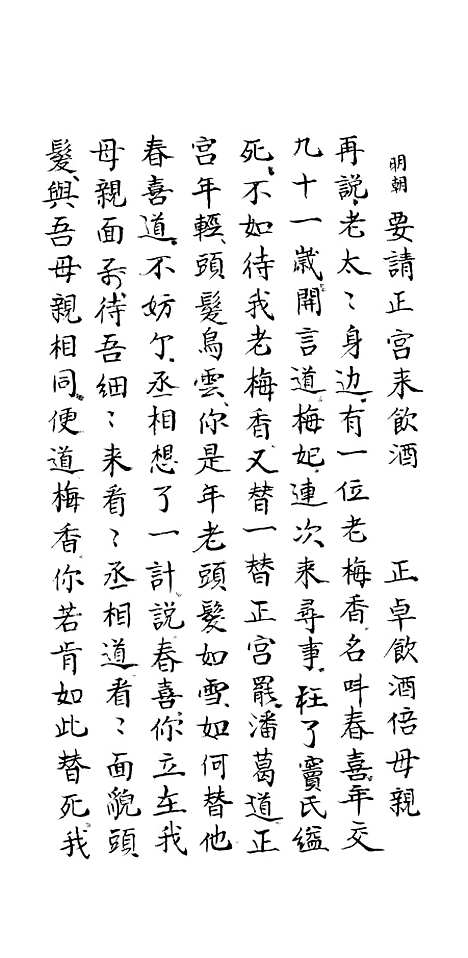 明朝要請正宮来飲酒　正卓飲酒倍母親
再説老太〻身边有一位老梅香名呌春喜年交
九十一歳開言道梅妃連次来尋事枉了竇氏縊
死不如待我老梅香又替一替正宮罷潘葛道正
宮年輕頭髮烏雲你是年老頭髮如雪如何替他
春喜道不妨尔丞相想了一計説春喜你立在我
母親面前待吾細〻来看〻丞相道看〻面貌頭
髮與吾母親相同便道梅香你若肯如此替死我